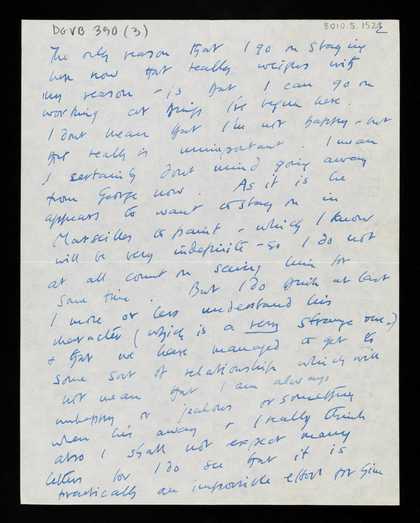 DGVB 390 (3)
8010.5.1522
The only reason that I go on staying
here now that really weighs with
my reason - is that I can go on
working at things I've begun here.
I don't mean that I'm not happy - but
that really is unimportant. I mean
I certainly don't mind going away
from George now. As it is he
appears to want to stay on in
Marseilles to paint - which I know
will be very indefinite - so I do not
at all count on seeing him for
some time. But I do think at last
I more or less understand his
character (which is a very strange one.)
& that we have managed to get to
some sort of relationship which will
not mean that I am always
unhappy or jealous or something
when he's away & I really think
also I shall not expect many
letters for I do see that it is
practically an impossible effort for him